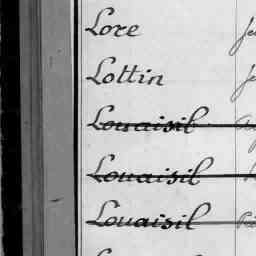 Lore
Lottin
Louaisil
Louaisil
Louaisil